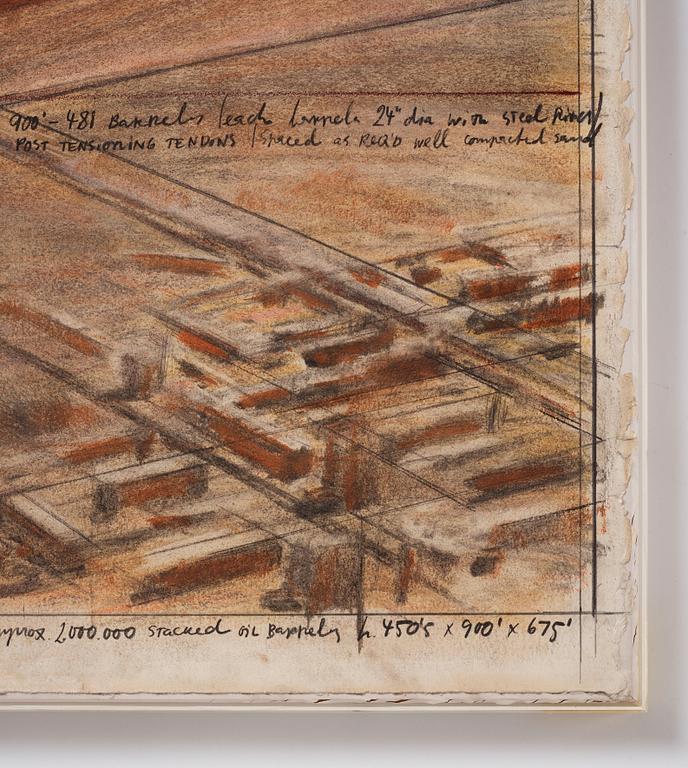 900'– 481 Barrels / each barrel 24" dia with steel
POST TENSIONING TENDONS / spaced as REQ'D well compacted sand
2000.000 STACKED OIL BARRELS h. 450'5 x 900' x 675'